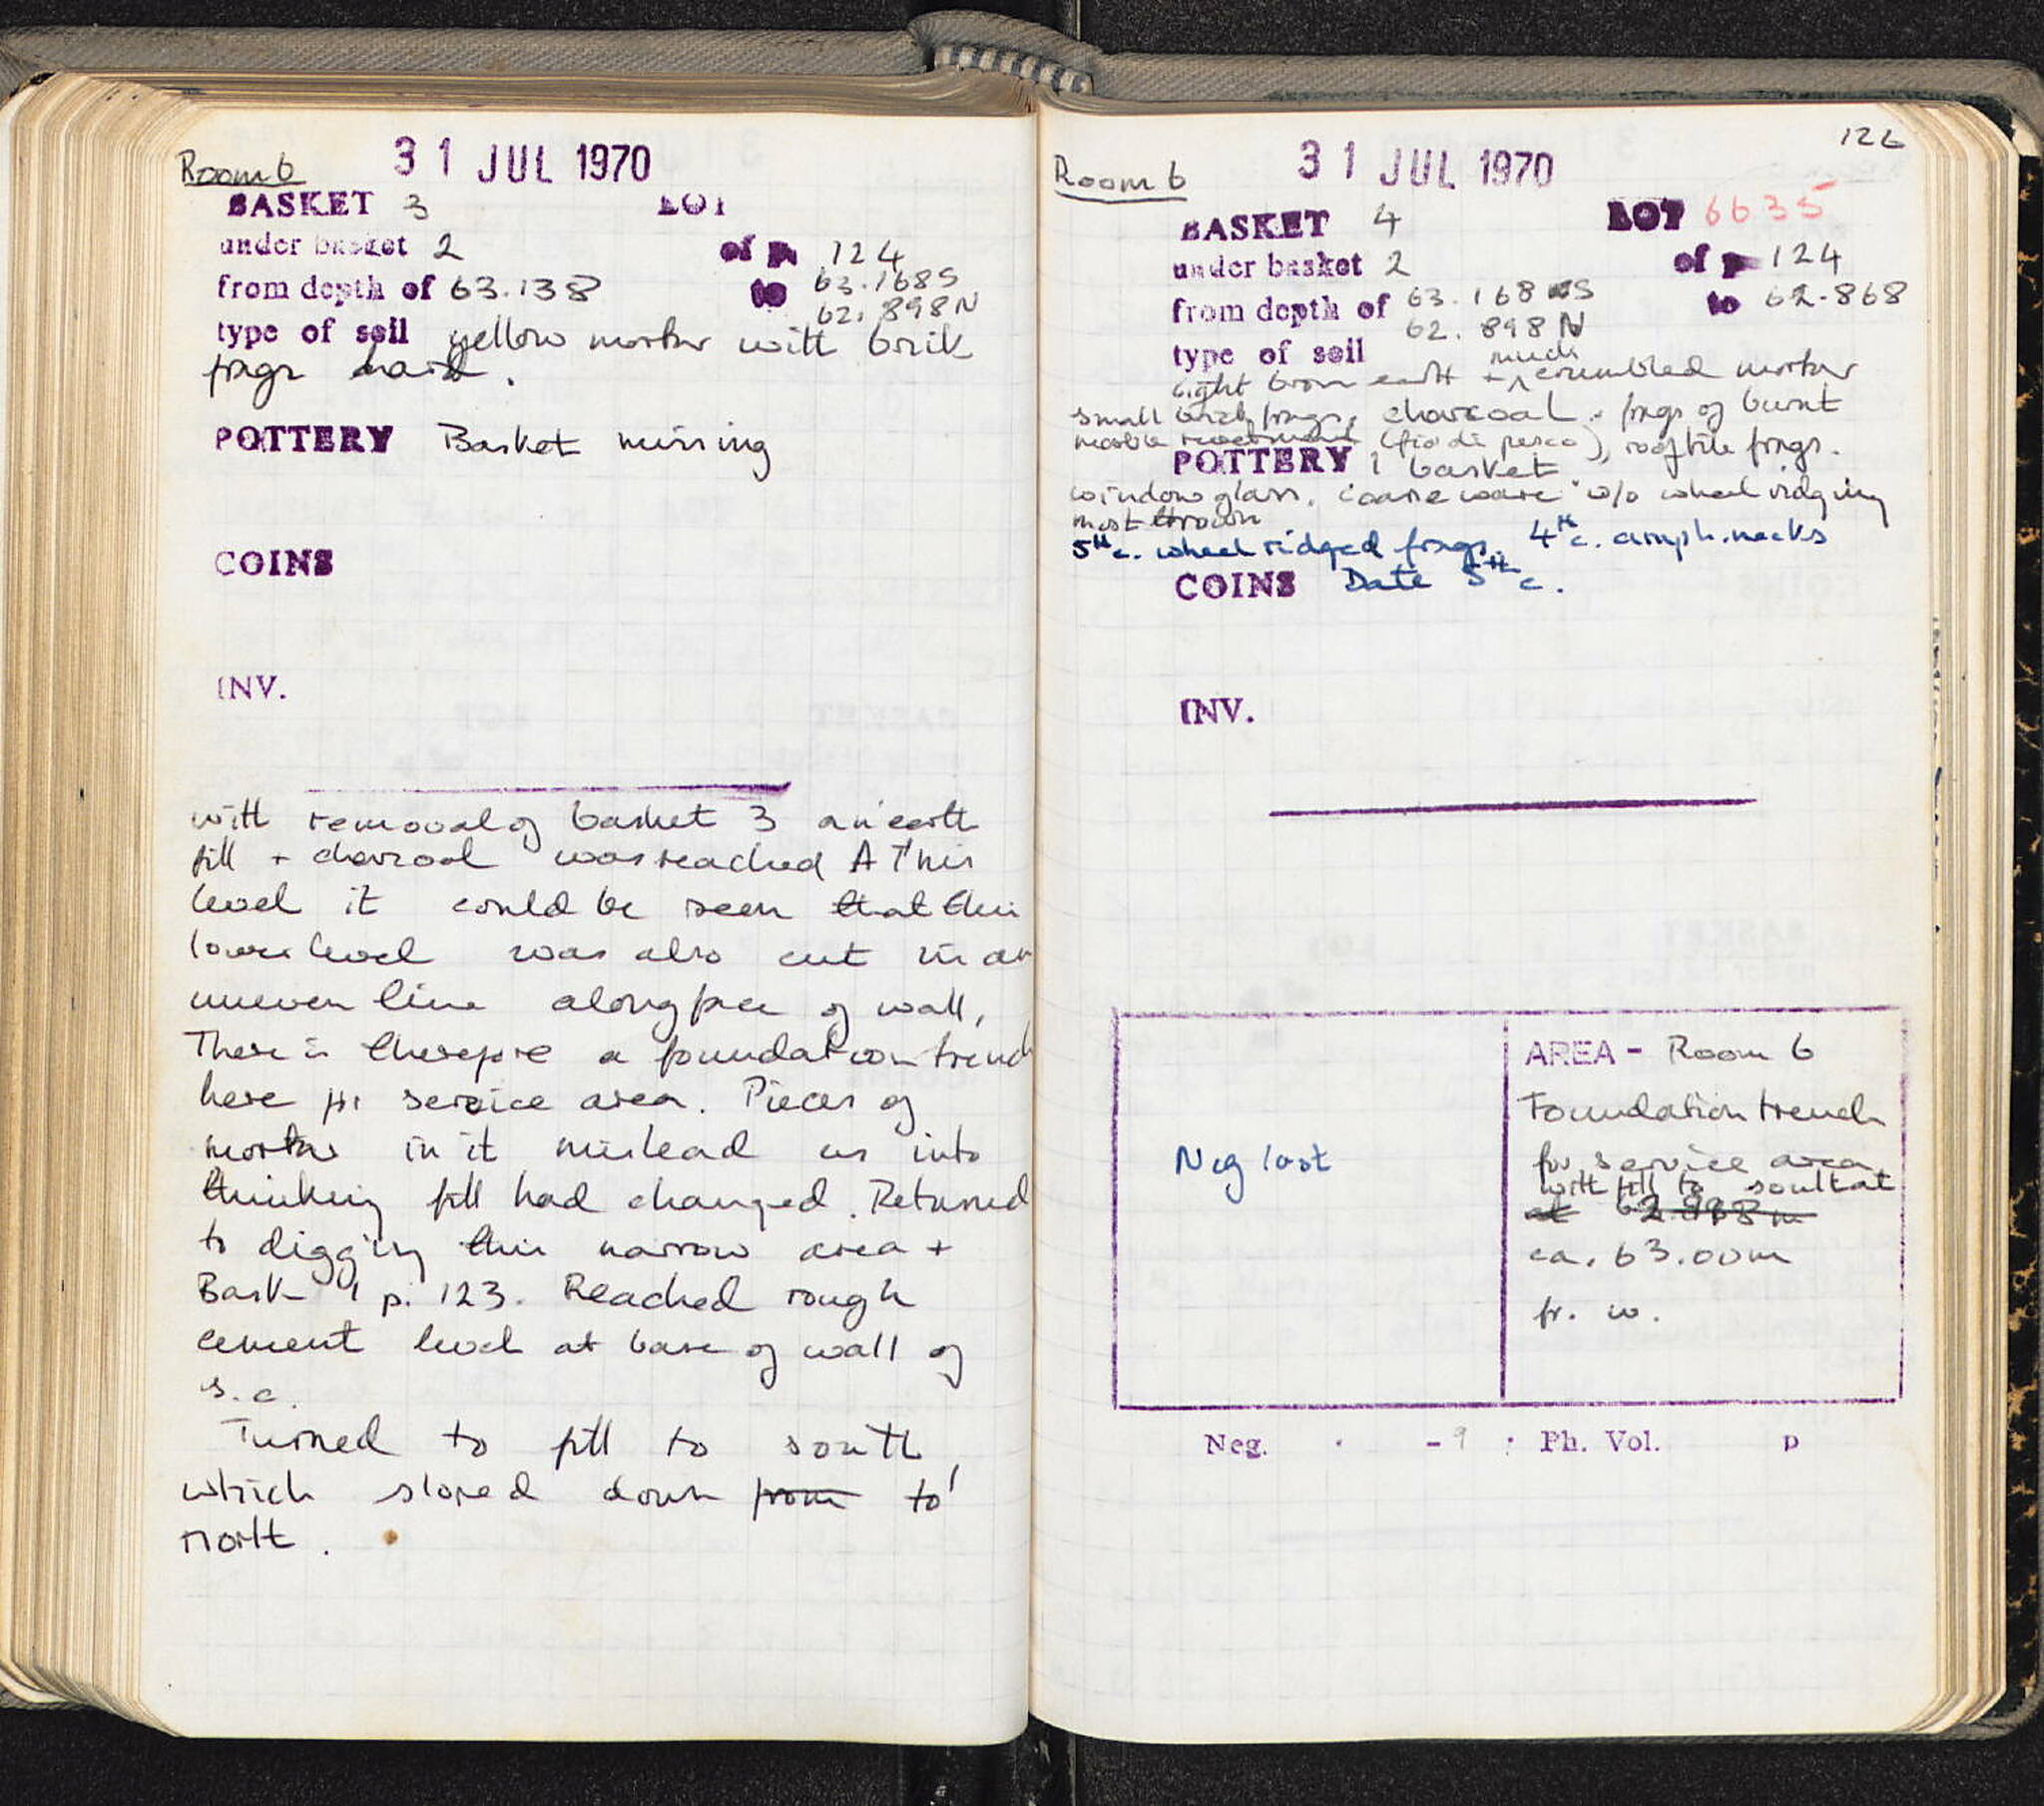 Room 6 31 JUL 1970
BASKET 3 LOT
under basket 2 of p 124
from depth of 63.138 to 63.168 S
62.898 N
type of soil yellow mortar with brik
frags hard.
POTTERY Basket missing
COINS
INV.
with removal of basket 3 an earth
fill + charcoal was reached At this
level it could be seen that this
lower level was also cut in an
uneven line along face of wall,
There is therefore a foundation trench
here for service area. Pieces of
mortar in it mislead us into
thinking fill had changed. Returned
to digging this narrow area +
Bask 1 p. 123. Reached rough
cement level at base of wall of
s.a.
Turned to fill to south,
which sloped down from to
north.
126
Room 6 31 JUL 1970
BASKET 4 LOT 6635
under basket 2 of p 124
from depth of 63.168 S to 62.868
62.898 N
type of soil
light brown earth + much crumbled mortar
small brick frags, charcoal. frags of burnt
marble revetment (fio di pesco), rooftile frags.
POTTERY 1 basket
window glass. coarse ware w/o wheel ridging
most thrown
5th c. wheel ridged frags. 4th c. amph. necks
COINS Date 5th c.
INV.
AREA - Room 6
Foundation trench
for service area
with fill to south at
at 62.898 m
ca. 63.00m
fr. w.
Neg lost
Neg. - 9 : Ph. Vol. p